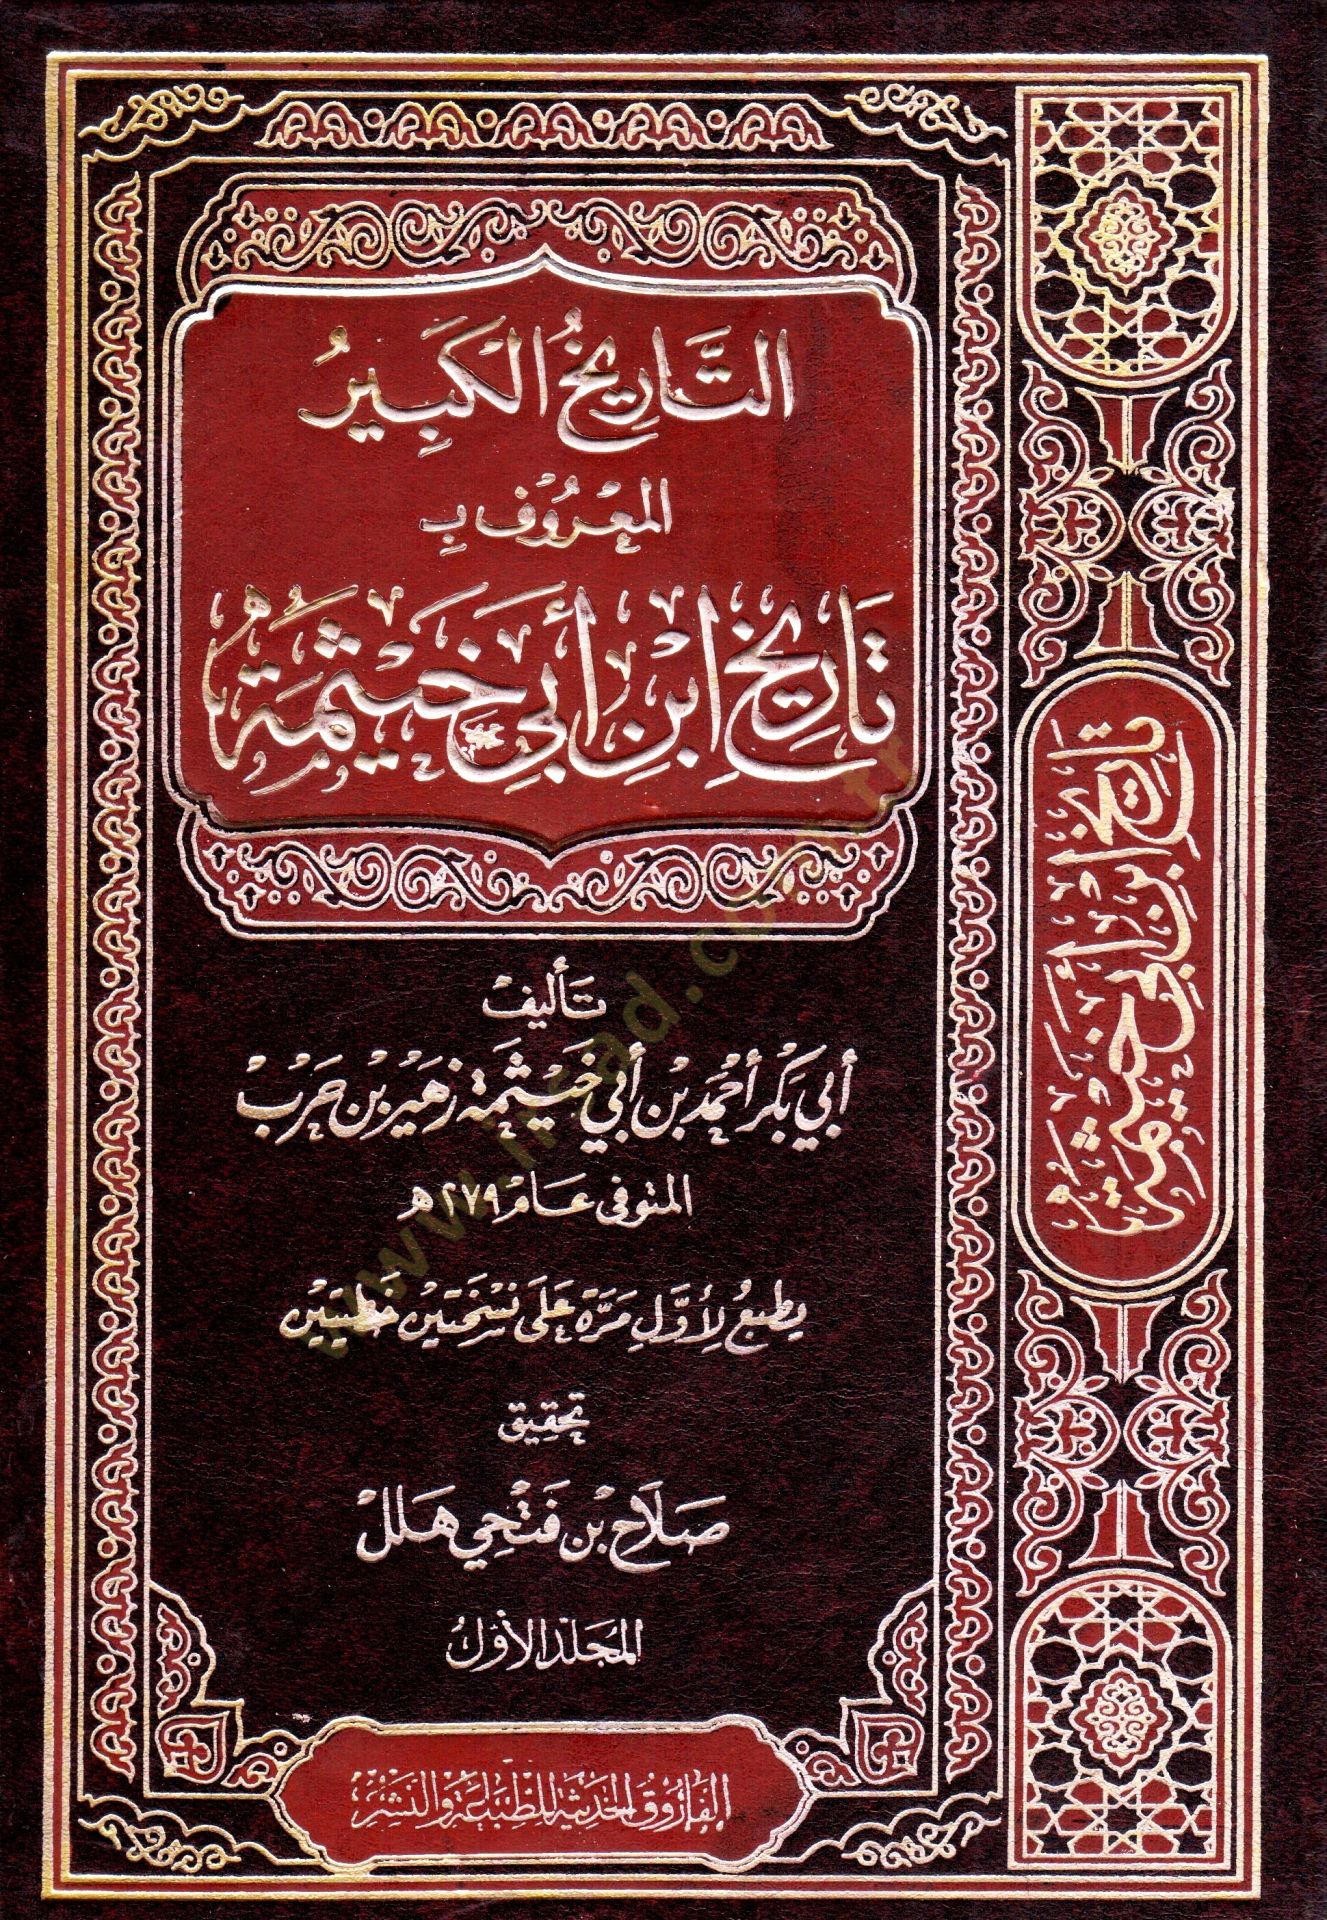 التَّارِيخُ الكَبِيرُ
المَعْرُوفُ بِ
تَارِيخِ ابْنِ أَبِي خَيْثَمَةَ
تَأليف
أبي بَكر أحمَد بْن أبي خَيْثَمَة زهَير بْن حَرْبْ
المتوفى عَام ٢٧٩ هـ
يطبع لأوَّلِ مَرَّة عَلَى نسْخَتَيْن خَطيَتَيْن
تحقيق
صَلَاح بْن فَتْحِي هَلَلْ
المجَلد الأوّلُ
الفَارُوق الحَديثَة للطِّبَاعَة وَالنَشْر
تَاريخ ابْن أَبي خَيثمَة
www.irsad.com.tr